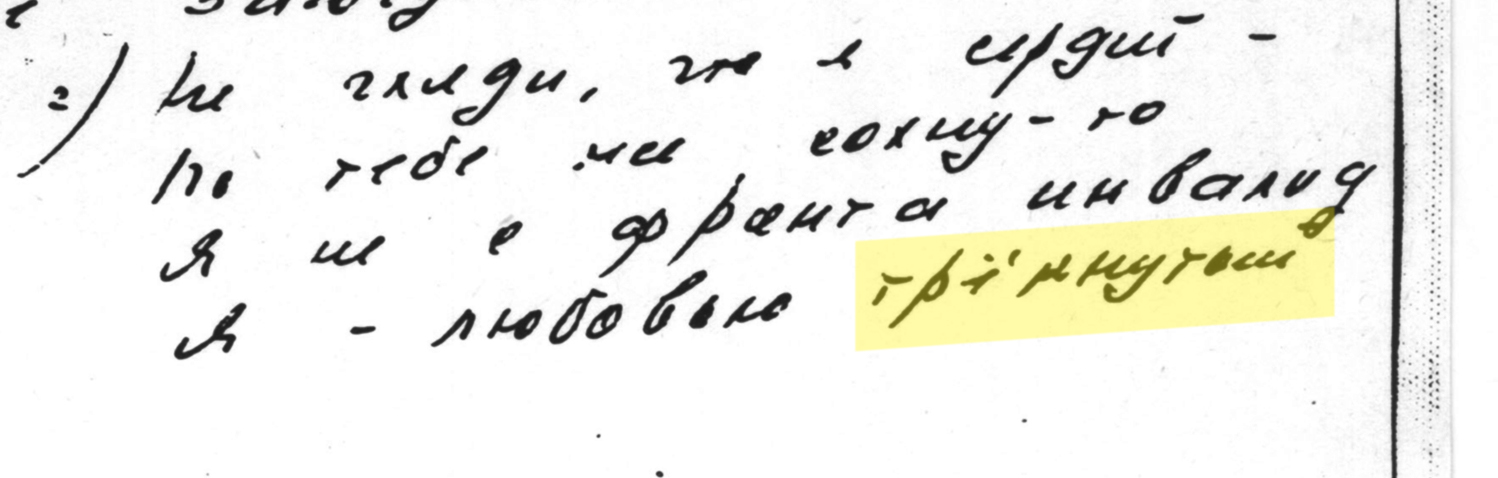 2) Не гляди, что я сердит -
По тебе же сохну-то
Я не с фронта инвалид
Я - любовью трёхнутый